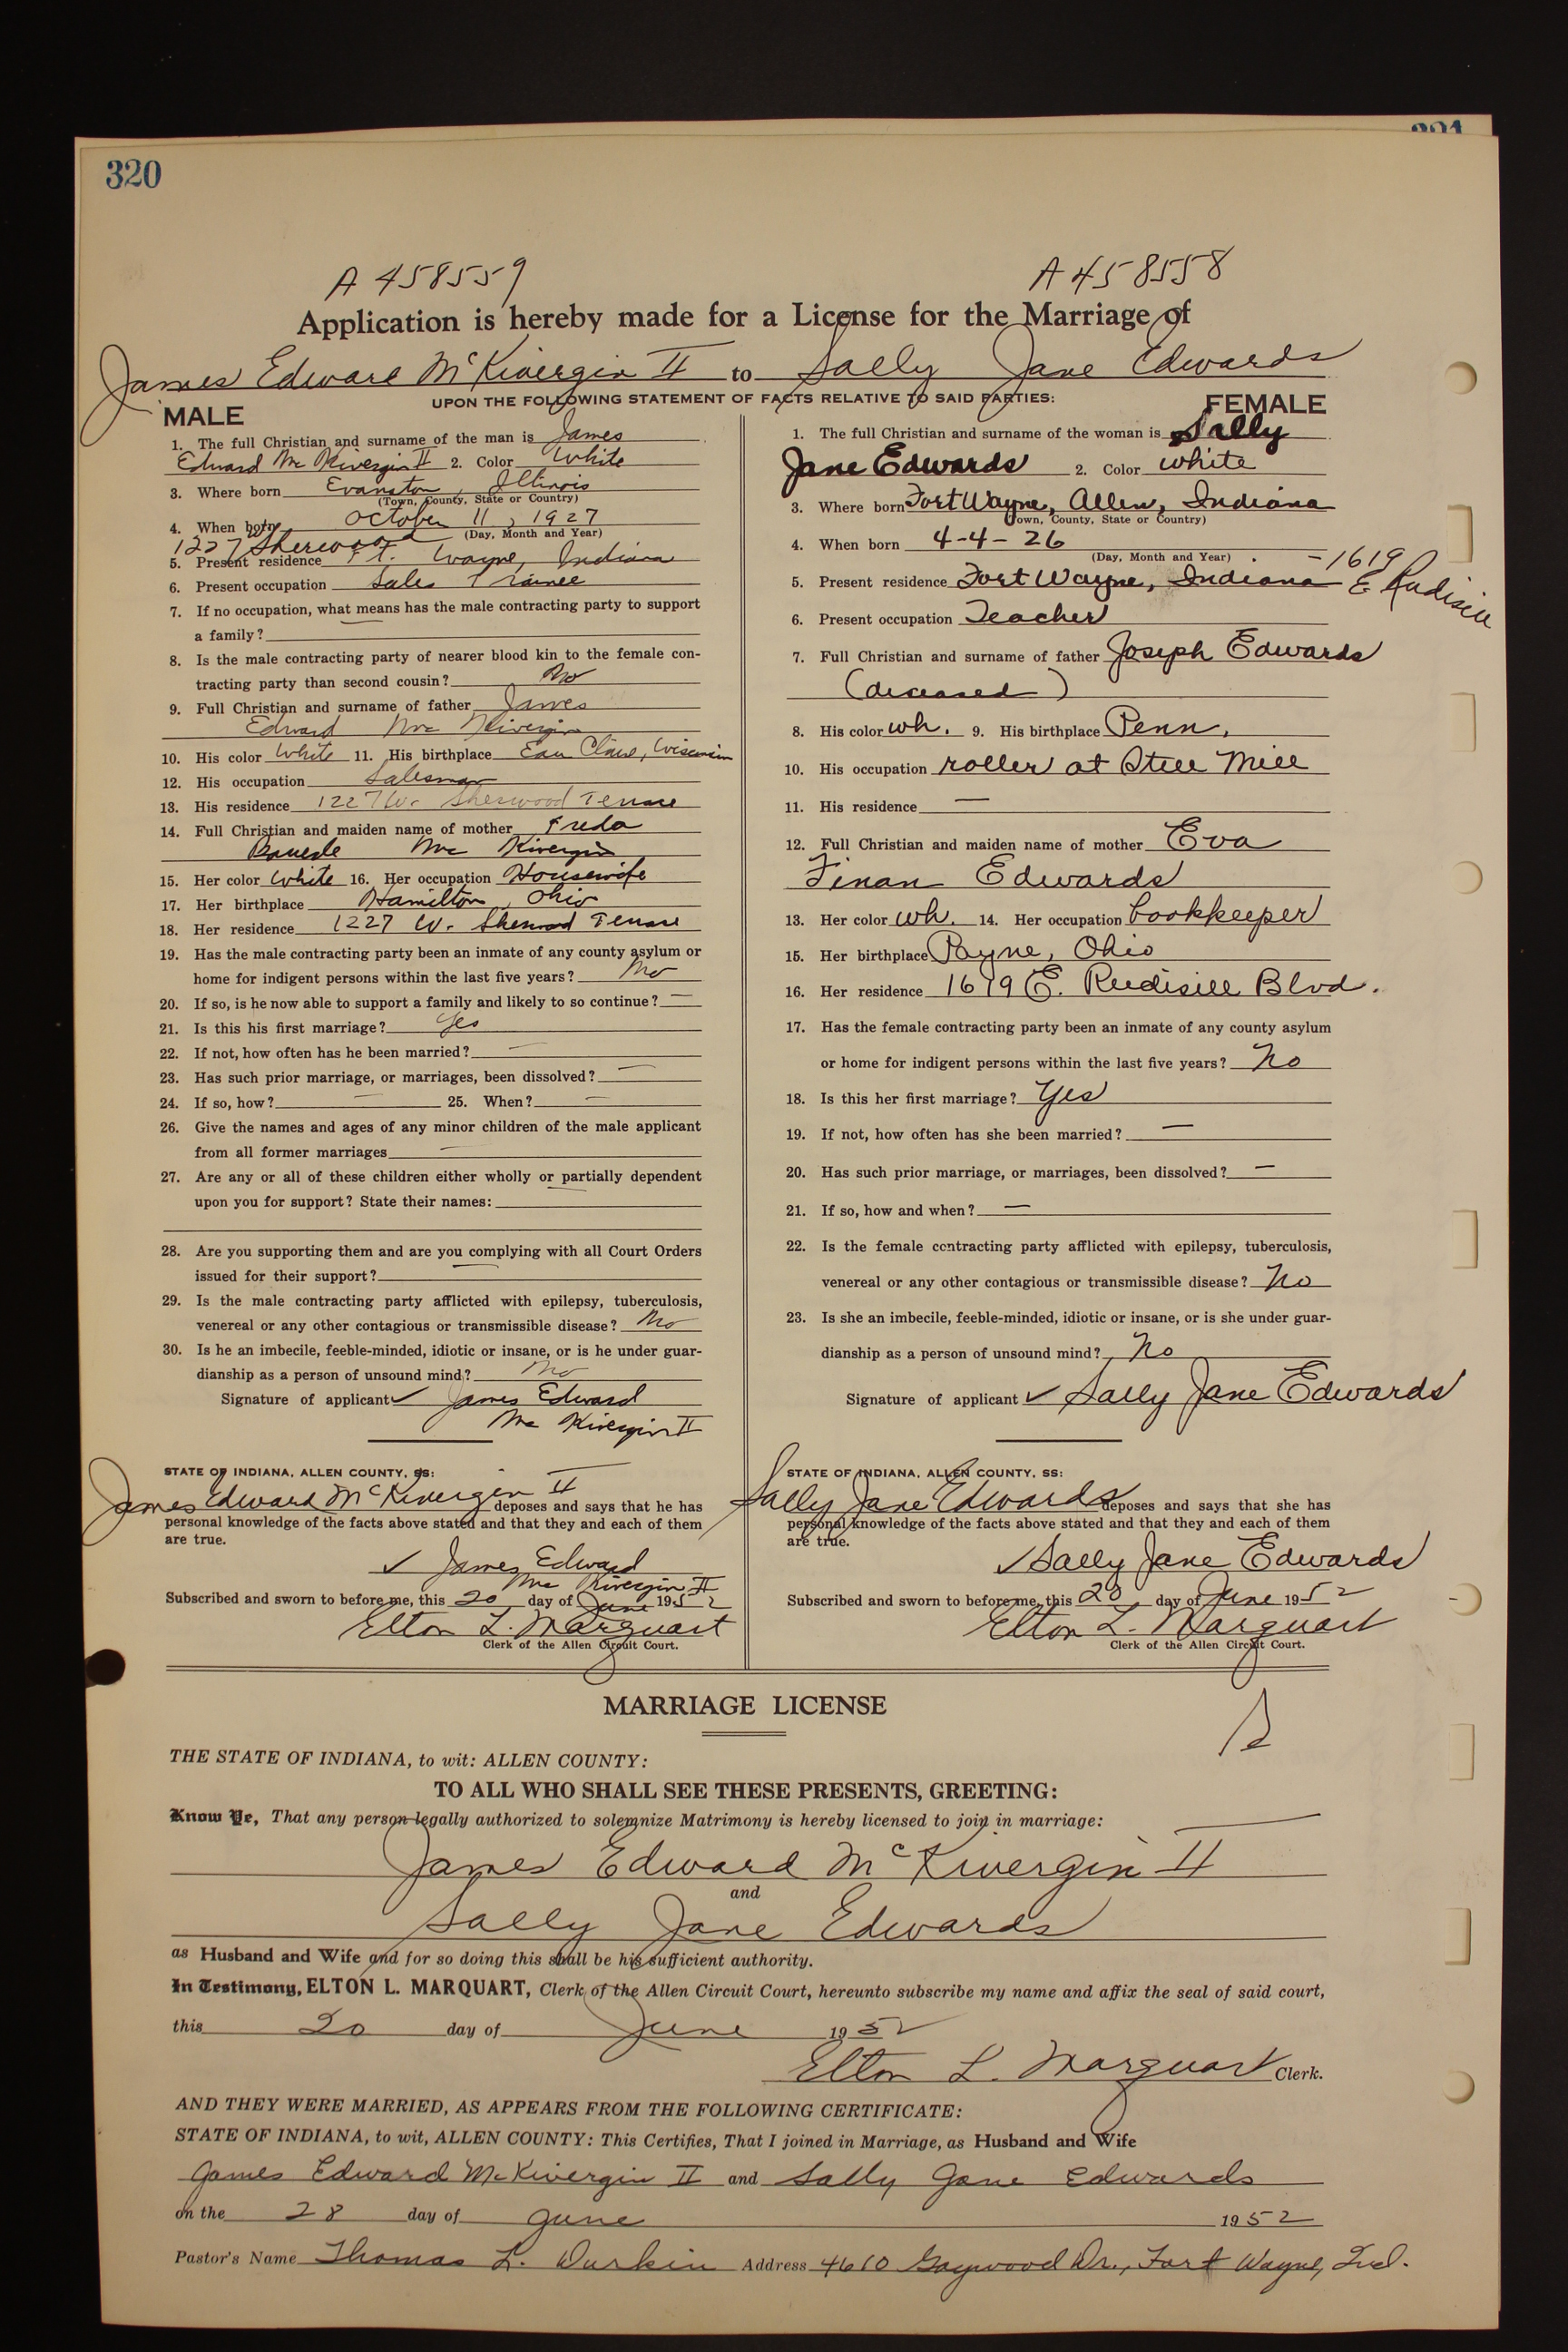 320
A 458559
A 458558
Application is hereby made for a License for the Marriage of
James Edward McKivergin II to Sally Jane Edwards
UPON THE FOLLOWING STATEMENT OF FACTS RELATIVE TO SAID PARTIES:
MALE
1. The full Christian and surname of the man is James
Edward Mc Kivergin II 2. Color White
3. Where born Evanston, Illinois
(Town, County, State or Country)
4. When born October 11, 1927
(Day, Month and Year)
1227 Sherwood
5. Present residence Ft. Wayne, Indiana
6. Present occupation Sales Trainee
7. If no occupation, what means has the male contracting party to support
a family?
8. Is the male contracting party of nearer blood kin to the female con-
tracting party than second cousin? No
9. Full Christian and surname of father James
Edward Mc Kivergin
10. His color White 11. His birthplace Eau Claire, Wisconsin
12. His occupation Salesman
13. His residence 1227 W. Sherwood Terrace
14. Full Christian and maiden name of mother Freda
Mc Kivergin
15. Her color White 16. Her occupation Housewife
17. Her birthplace Hamilton, Ohio
18. Her residence 1227 W. Sherwood Terrace
19. Has the male contracting party been an inmate of any county asylum or
home for indigent persons within the last five years? No
20. If so, is he now able to support a family and likely to so continue? —
21. Is this his first marriage? Yes
22. If not, how often has he been married? —
23. Has such prior marriage, or marriages, been dissolved? —
24. If so, how? — 25. When? —
26. Give the names and ages of any minor children of the male applicant
from all former marriages —
27. Are any or all of these children either wholly or partially dependent
upon you for support? State their names:
28. Are you supporting them and are you complying with all Court Orders
issued for their support?
29. Is the male contracting party afflicted with epilepsy, tuberculosis,
venereal or any other contagious or transmissible disease? No
30. Is he an imbecile, feeble-minded, idiotic or insane, or is he under guar-
dianship as a person of unsound mind? No
Signature of applicant ✓ James Edward
Mc Kivergin II
STATE OF INDIANA, ALLEN COUNTY, SS:
James Edward McKivergin II deposes and says that he has
personal knowledge of the facts above stated and that they and each of them
are true.
✓ James Edward
Mc Kivergin II
Subscribed and sworn to before me, this 20 day of June 1952
Elton L. Marquart
Clerk of the Allen Circuit Court.
FEMALE
1. The full Christian and surname of the woman is Sally
Jane Edwards 2. Color white
3. Where born Fort Wayne, Allen, Indiana
(Town, County, State or Country)
4. When born 4-4-26
(Day, Month and Year)
5. Present residence Fort Wayne, Indiana - 1619
E Rudisill
6. Present occupation Teacher
7. Full Christian and surname of father Joseph Edwards
(deceased)
8. His color wh. 9. His birthplace Penn.
10. His occupation roller at Steel Mill
11. His residence —
12. Full Christian and maiden name of mother Eva
Finan Edwards
13. Her color wh. 14. Her occupation bookkeeper
15. Her birthplace Payne, Ohio
16. Her residence 1619 E. Rudisill Blvd.
17. Has the female contracting party been an inmate of any county asylum
or home for indigent persons within the last five years? No
18. Is this her first marriage? Yes
19. If not, how often has she been married? —
20. Has such prior marriage, or marriages, been dissolved? —
21. If so, how and when? —
22. Is the female contracting party afflicted with epilepsy, tuberculosis,
venereal or any other contagious or transmissible disease? No
23. Is she an imbecile, feeble-minded, idiotic or insane, or is she under guar-
dianship as a person of unsound mind? No
Signature of applicant ✓ Sally Jane Edwards
STATE OF INDIANA, ALLEN COUNTY, SS:
Sally Jane Edwards deposes and says that she has
personal knowledge of the facts above stated and that they and each of them
are true.
✓ Sally Jane Edwards
Subscribed and sworn to before me, this 20 day of June 1952
Elton L. Marquart
Clerk of the Allen Circuit Court.
MARRIAGE LICENSE
THE STATE OF INDIANA, to wit: ALLEN COUNTY:
TO ALL WHO SHALL SEE THESE PRESENTS, GREETING:
Know Ye, That any person legally authorized to solemnize Matrimony is hereby licensed to join in marriage:
James Edward McKivergin II
and
Sally Jane Edwards
as Husband and Wife and for so doing this shall be his sufficient authority.
In Testimony, ELTON L. MARQUART, Clerk of the Allen Circuit Court, hereunto subscribe my name and affix the seal of said court,
this 20 day of June 1952
Elton L. Marquart Clerk.
AND THEY WERE MARRIED, AS APPEARS FROM THE FOLLOWING CERTIFICATE:
STATE OF INDIANA, to wit, ALLEN COUNTY: This Certifies, That I joined in Marriage, as Husband and Wife
James Edward McKivergin II and Sally Jane Edwards
on the 28 day of June 1952
Pastor's Name Thomas L. Durkin Address 4610 Gaywood Dr., Fort Wayne, Ind.